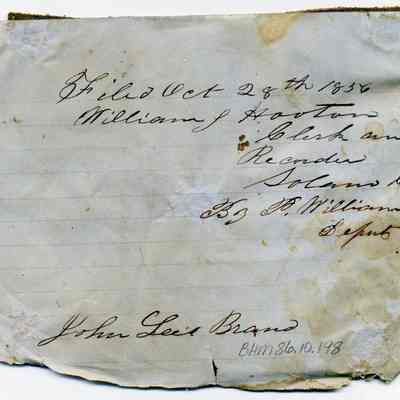 Filed Oct 28th 1856
William J Hooton
Clerk an
Recorder
Solano
By P. William
Deput
John Lees Brand
BHM 86.10.148